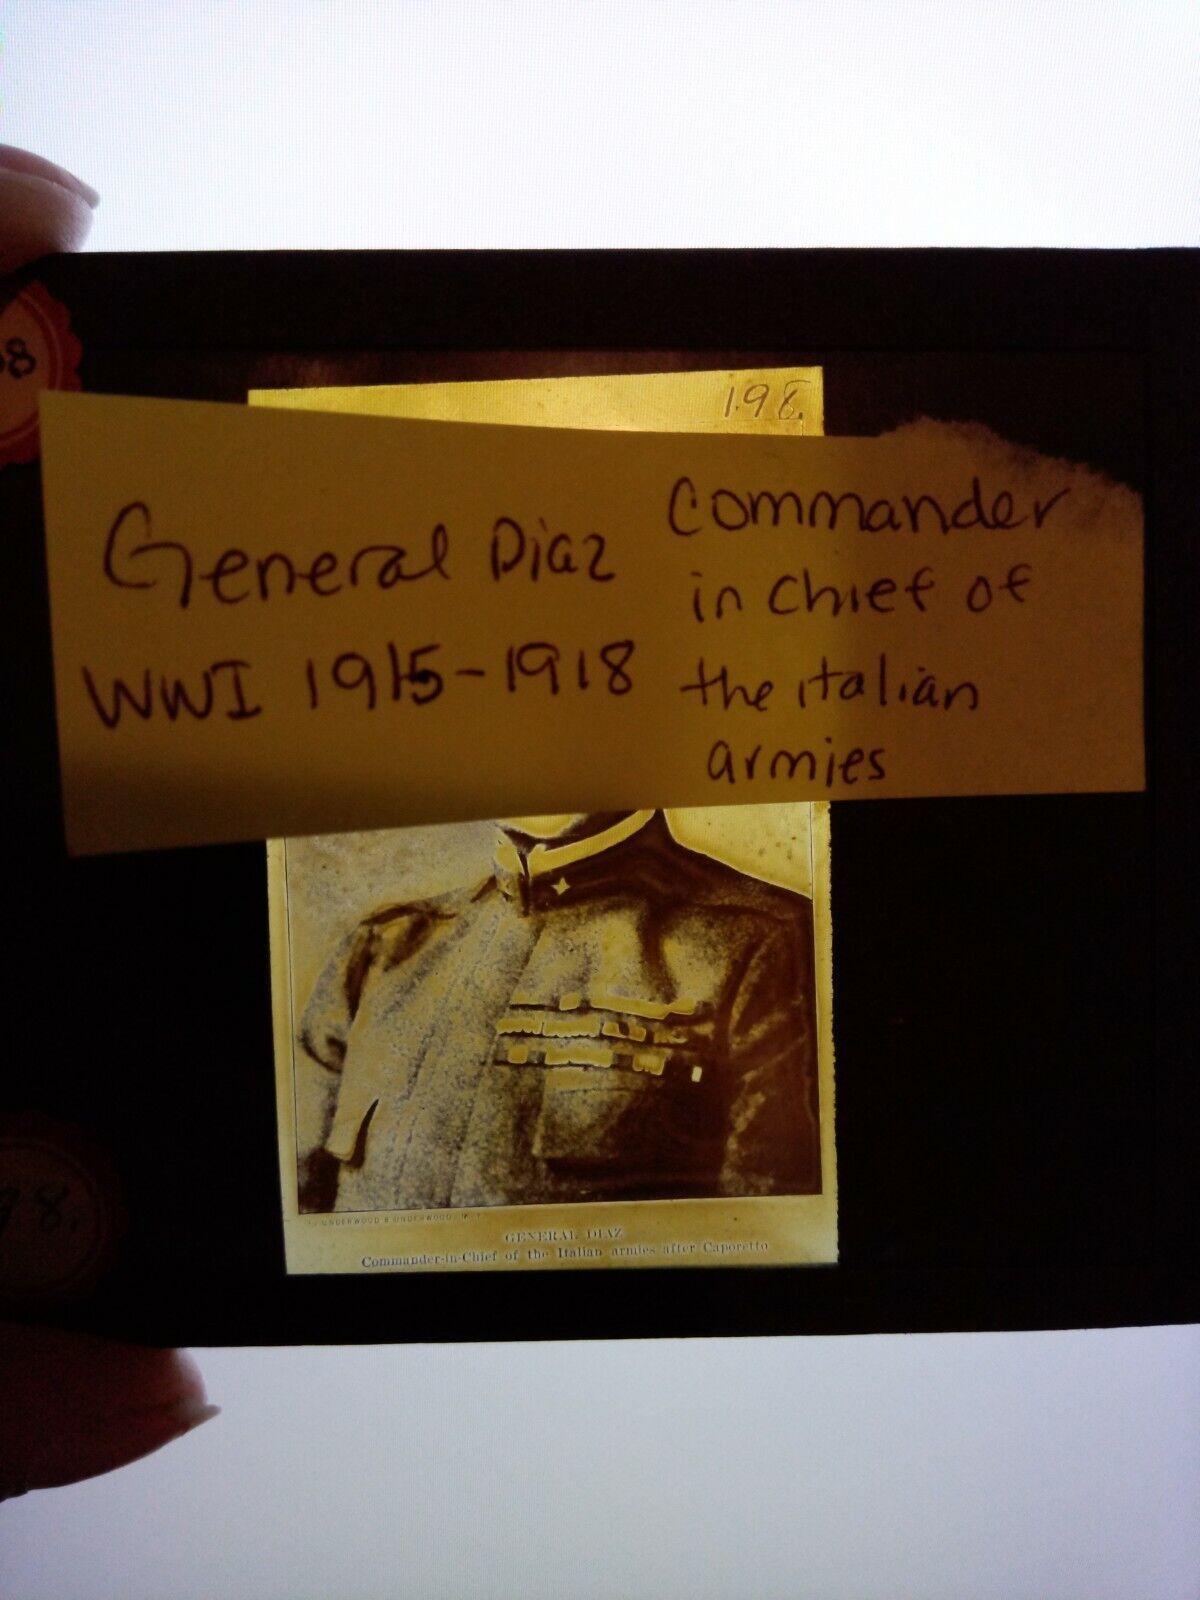 198.
98
General Diaz
WWI 1915-1918
Commander
in chief of
the italian
armies
98.
UNDERWOOD & UNDERWOOD, N.Y.
GENERAL DIAZ
Commander-in-Chief of the Italian armies after Caporetto